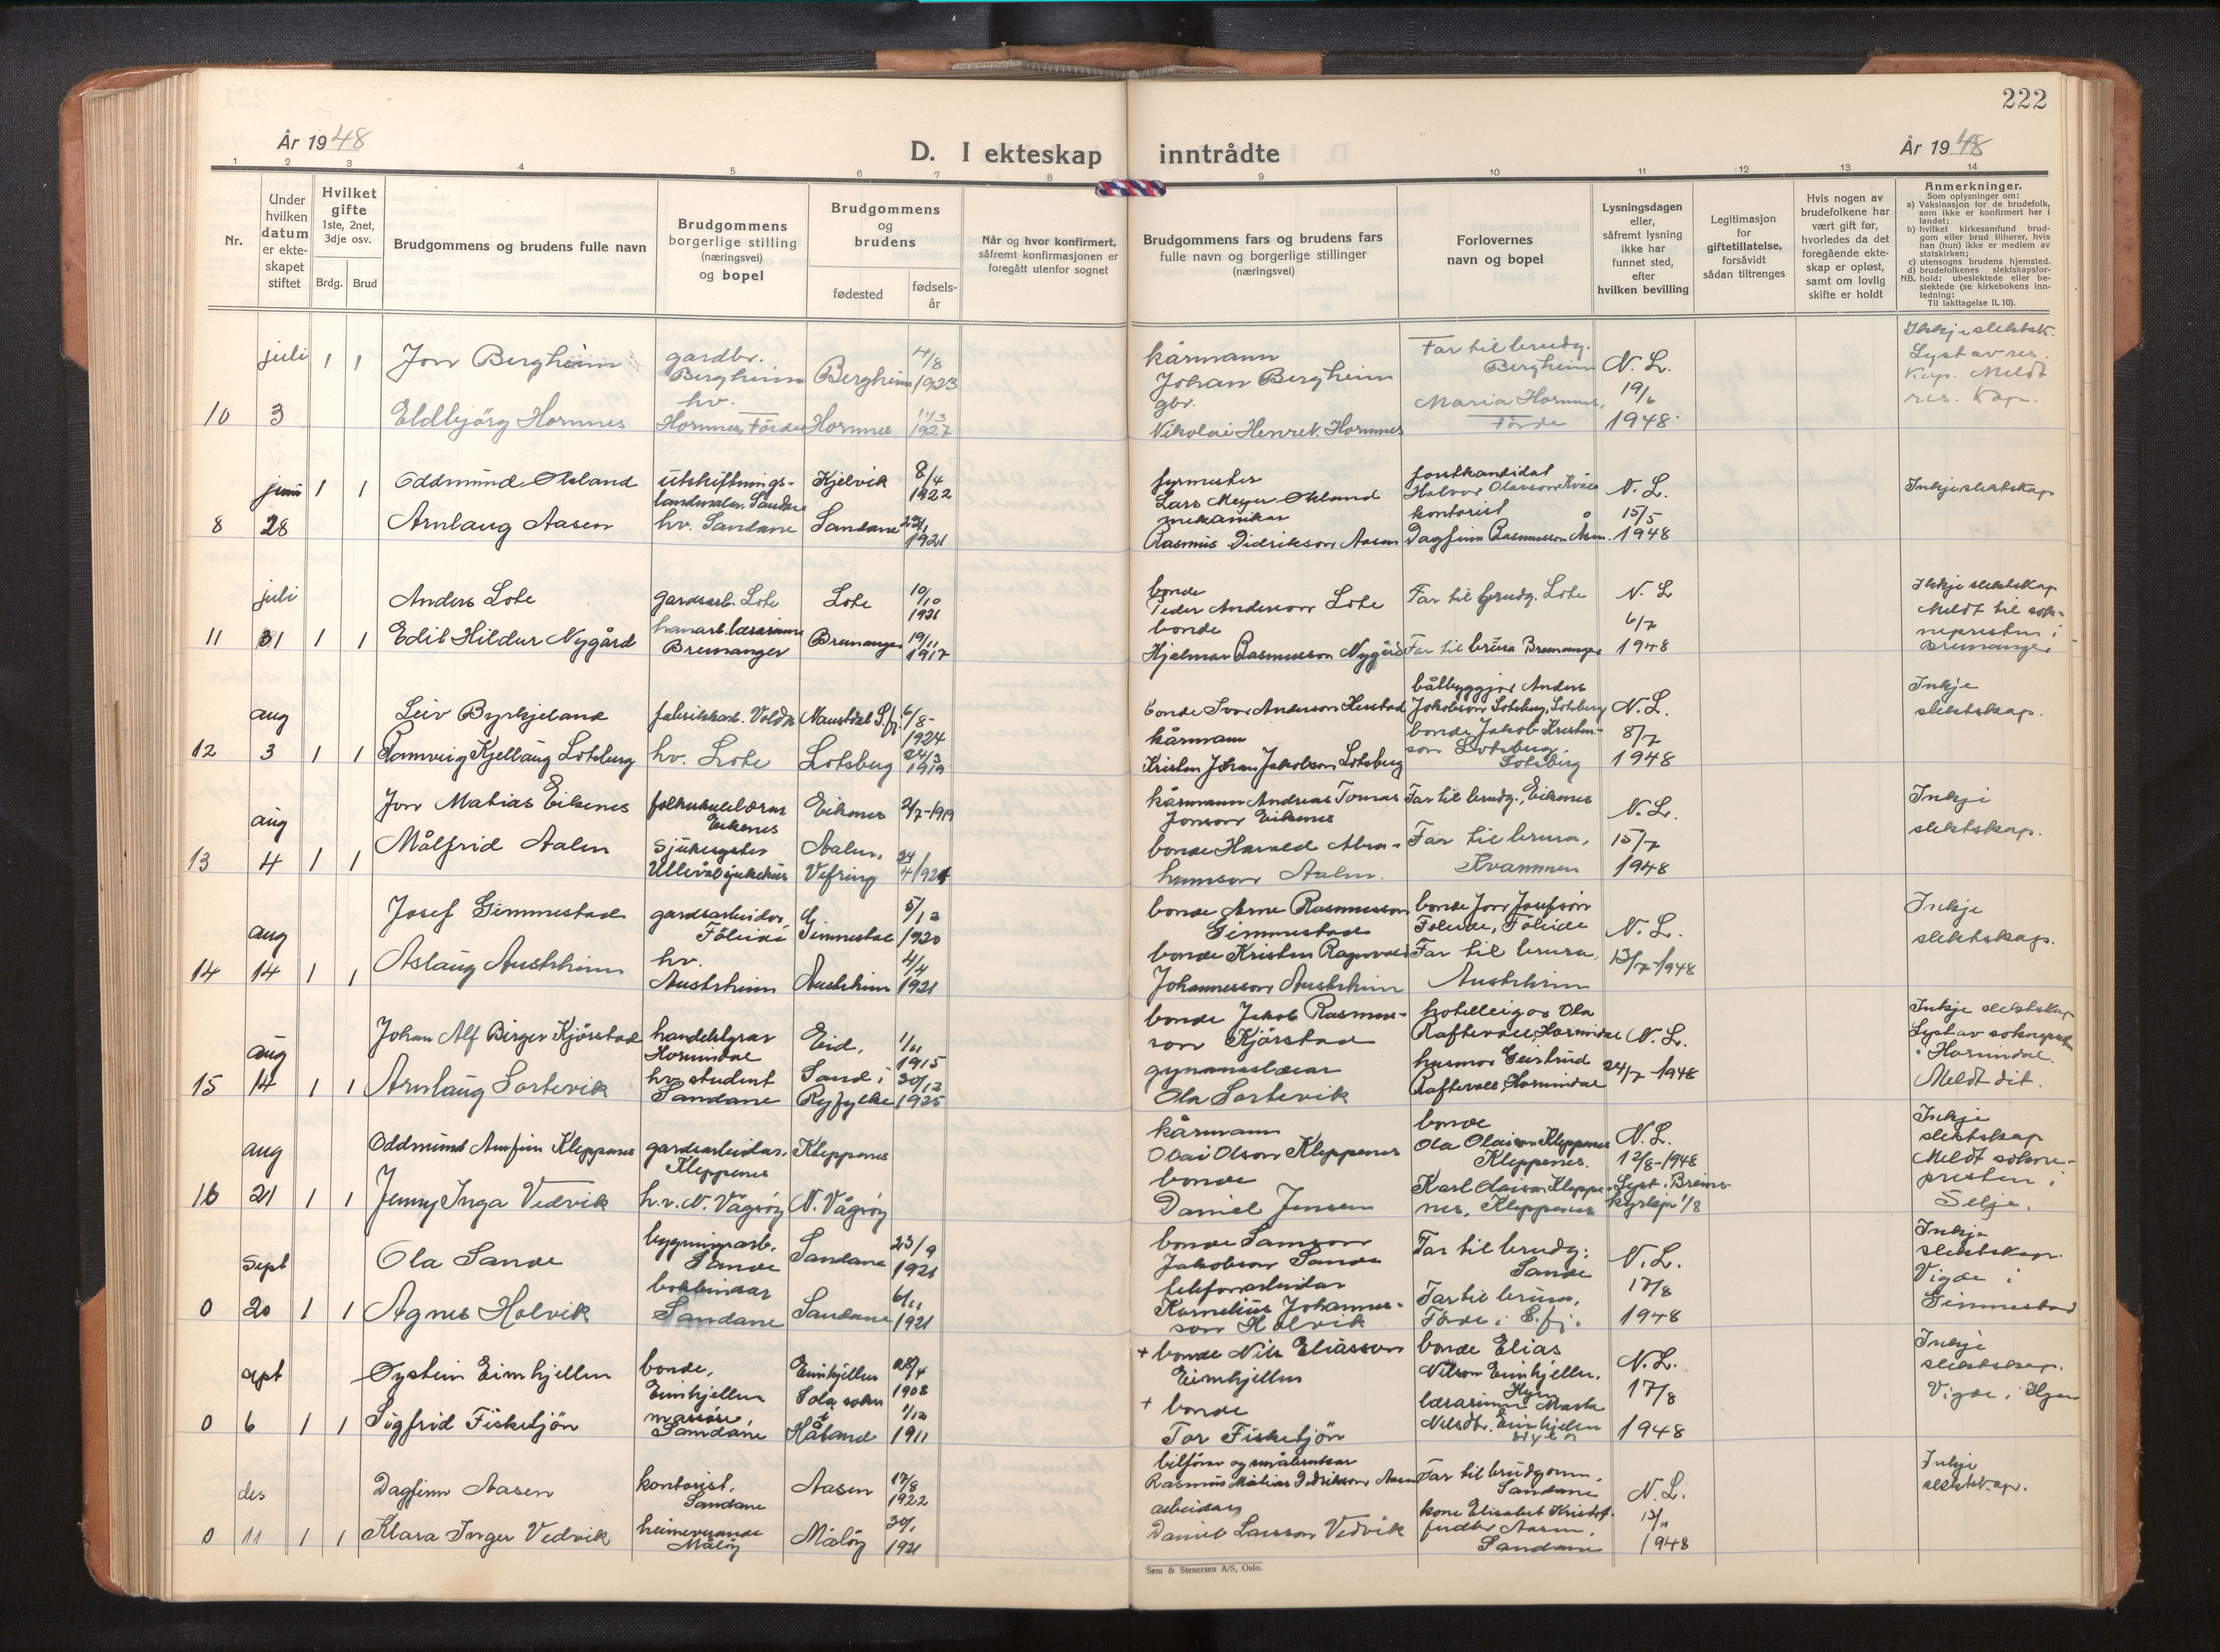 222
År 1948
D. I ekteskap inntrådte
År 1948
1 2 3 4 5 6 7 8 9 10 11 12 13 14
Nr.
Under hvilken datum er ekteskapet stiftet
Hvilket gifte 1ste, 2net, 3dje osv.
Brdg. Brud
Brudgommens og brudens fulle navn
Brudgommens borgerlige stilling (næringsvei) og bopel
Brudgommens og brudens
fødested
fødsels-år
Når og hvor konfirmert, såfremt konfirmasjonen er foregått utenfor sognet
Brudgommens fars og brudens fars fulle navn og borgerlige stillinger (næringsvei)
Forlovernes navn og bopel
Lysningsdagen eller, såfremt lysning ikke har funnet sted, efter hvilken bevilling
Legitimasjon for giftetillatelse, forsåvidt sådan tiltrenges
Hvis nogen av brudefolkene har vært gift før, hvorledes da det foregående ekteskap er opløst, samt om lovlig skifte er holdt
Anmerkninger.
Som oplysninger om:
a) Vaksinasjon for de brudefolk, som ikke er konfirmert her i landet;
b) hvilket kirkesamfund brudgom eller brud tilhører, hvis han (hun) ikke er medlem av statskirken;
c) utensogns brudens hjemsted.
d) brudefolkenes slektskapsforhold: ubeslektede eller beslektede (se kirkebokens innledning:
NB.
Til iakttagelse II, 10).
10 juli 3 1 1
Jon Bergheim gardbr. Bergheim Bergheim 4/8 1923
Eldbjörg Hornnes hv. Hornnes, Förde Hornnes 11/3 1927
kårmann Johan Bergheim
gbr. Nikolai Henrik Hornnes
Far til brudg. Bergheim
Maria Hornnes, Förde
N. L. 19/6 1948
Ikkje slektsk. Lyst av res. Kap. Meldt res. Kap.
8 juni 28 1 1
Oddmund Økland utskiftnings-landmålar, Sandane Kjelvik 8/4 1922
Arnlaug Aasen hv. Sandane Sandane 1921
fyrmester Lars Meyer Økland
mekanikar Rasmus Didrikson Aasen
forstkandidat Halvor Olavson
kontorist Dagfinn Rasmusson Åsen.
N. L. 15/5 1948
Inkje slektskap
11 juli 31 1 1
Anders Lote gardsarb. Lote Lote 10/10 1921
Edit Hildur Nygård hanarb.lærarinne Bremanger Bremanger 19/11 1917
bonde Peder Anderson Lote
bonde Hjalmar Rasmusson Nygård
Far til brudg. Lote
Far til brura Bremanger
N. L. 6/7 1948
Ikkje slektskap Meldt til soknepresten i Bremanger
12 aug 3 1 1
Leiv Byrkjeland fabrikkarb. Volda Naustdal S.fj. 6/8- 1924
Ranveig Kjellaug Lotsberg hv. Lote Lotsberg 24/3 1919
bonde Ivar Anderson
kårmann Kristen Johan Jakobson Lotsberg
båtbyggjar Anders Jakobson Lotsberg, Lotsberg
bonde Jakob Kristenson Lotsberg, Lotsberg
N. L. 8/7 1948
Inkje slektskap.
13 aug 4 1 1
Jon Matias Eikenes folkskulelærar Eikenes Eikenes 2/7-1919
Målfrid Aalen sjukesyster Ullevål sjukehus Aalen, Vefring 24/4 1921
kårmann Andreas Tomas Jonson Eikenes
bonde Harald Abrahamson Aalen.
Far til brudg., Eikenes
Far til brura, Kvammen
N. L. 15/7 1948
Inkje slektskap.
14 aug 14 1 1
Josef Gimmestad gardsarbeider Föleide G. Gimmestad 5/12 1920
Aslaug Austrheim hv. Austrheim Austrheim 4/4 1921
bonde Arne Rasmusson Gimmestad
bonde Kristen Ragnvald Johannesson Austrheim
bonde Jon Josefson Föleide, Föleide
Far til brura, Austrheim
N. L. 13/7-1948
Inkje slektskap.
15 aug 14 1 1
Johan Alf Birger Kjörstad handelslærar Hornindal Eid, 1/11 1915
Arnlaug Sortevik hv. student Sandane Sand i Ryfylke 30/12 1925
bonde Jakob Rasmusson Kjörstad
gymnaslærar Ola Sortevik
hotelleigar Ola Raftevold, Hornindal
husmor Geirtrud Raftevold, Hornindal
N. L. 24/7-1948
Inkje slektskap Lyst av sokneprest i Hornindal. Meldt dit.
16 aug 21 1 1
Oddmund Arnfinn Kleppenes gardsarbeidar. Kleppenes Kleppenes
Jenny Inga Vedvik h.v. N. Vågsöy N. Vågsöy
kårmann Olai Olson Kleppenes
bonde Daniel Jensen
bonde Ola Olaison Kleppenes Kleppenes.
Karl Olaison Kleppenes, Kleppenes
N. L. 12/8-1948 Lyst i Breimskyrkja 1/8
Inkje slektskap Meldt sokne-presten i Selje.
0 sept 20 1 1
Ola Sande bygningsarb. Sande Sandane 23/9 1921
Agnes Holvik bokbindar Sandane Sandane 6/11 1921
bonde Samson Jakobson Sande
telefonarbeidar Kornelius Johannesson Holvik
Far til brudg: Sande
Far til brura, Förde i S.fj.
N. L. 17/8 1948
Inkje slektskap. Vigde i Gimmestad
0 sept 6 1 1
Øystein Eimhjellen bonde, Eimhjellen Eimhjellen 28/4 1908
Sigfrid Fisketjön massöse, Sandane Sola sokn Håland 1/12 1911
+ bonde Nils Eliasson Eimhjellen
+ bonde Tor Fisketjön
bonde Elias Nilson Eimhjellen, Hyen
lærarinne Marta Nilsdtr. Eimhjellen
N. L. 17/8 1948
Inkje slektskap. Vigde i Hyen
0 des 11 1 1
Dagfinn Aasen kontorist, Sandane Aasen 17/8 1922
Klara Inger Vedvik heimeverande Måløy Måløy 30/1 1921
bilförar og småbrukar Rasmus Matias Didrikson Aasen
arbeidar, Daniel Larsson Vedvik
Far til brudgom. Sandane
kone Elisabet Kristof- Aasen, Sandane
N. L. 13/11 1948
Inkje slektskap.
Sem & Stenersen A/S, Oslo.